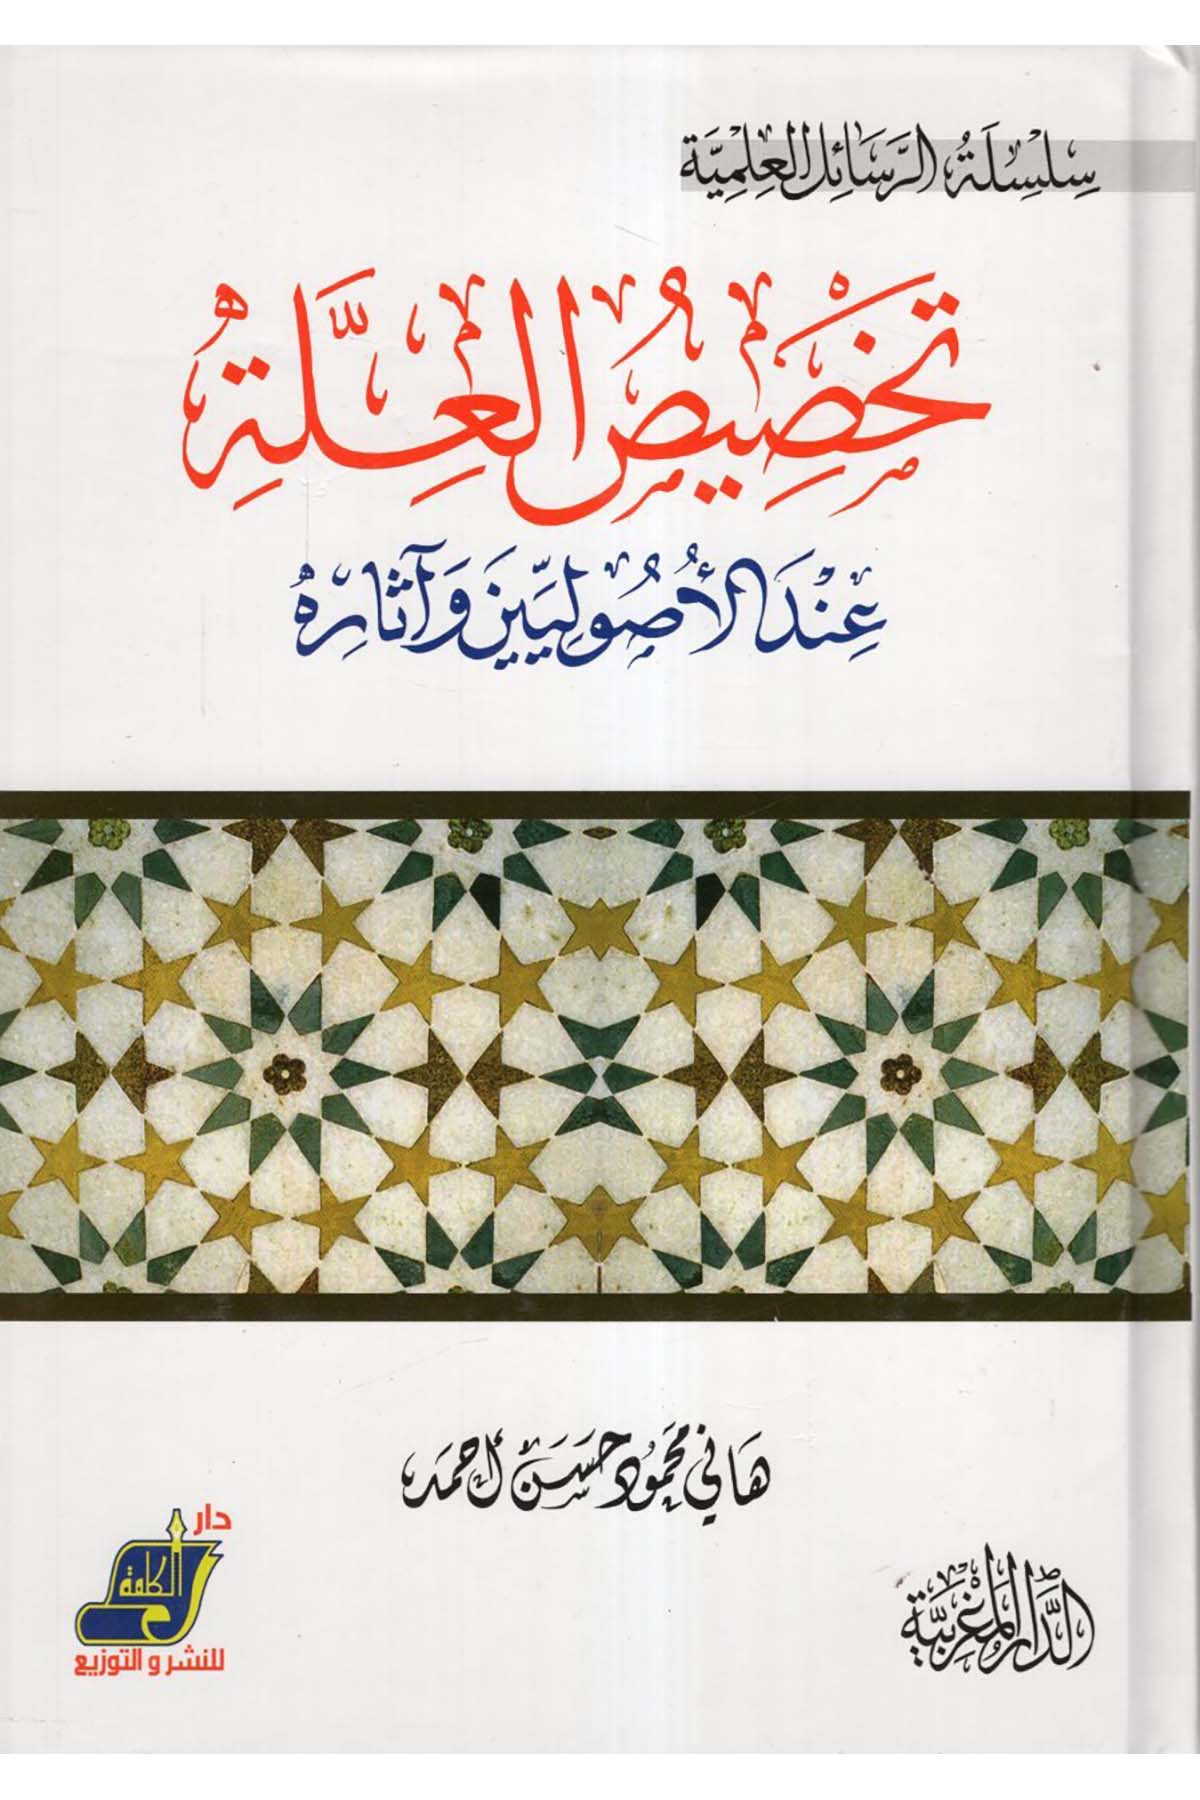 سِلْسِلَةُ الرَّسَائِلِ العِلْمِيَّة
تَخْصِيصُ العِلَّةِ
عِنْدَ الأُصُولِيِّينَ وَآثَارُهُ
هَانِي مَحْمُود حَسَن أَحْمَد
دار
الكلمة
للنشر و التوزيع
الدَّارُ المَغْرِبِيَّة